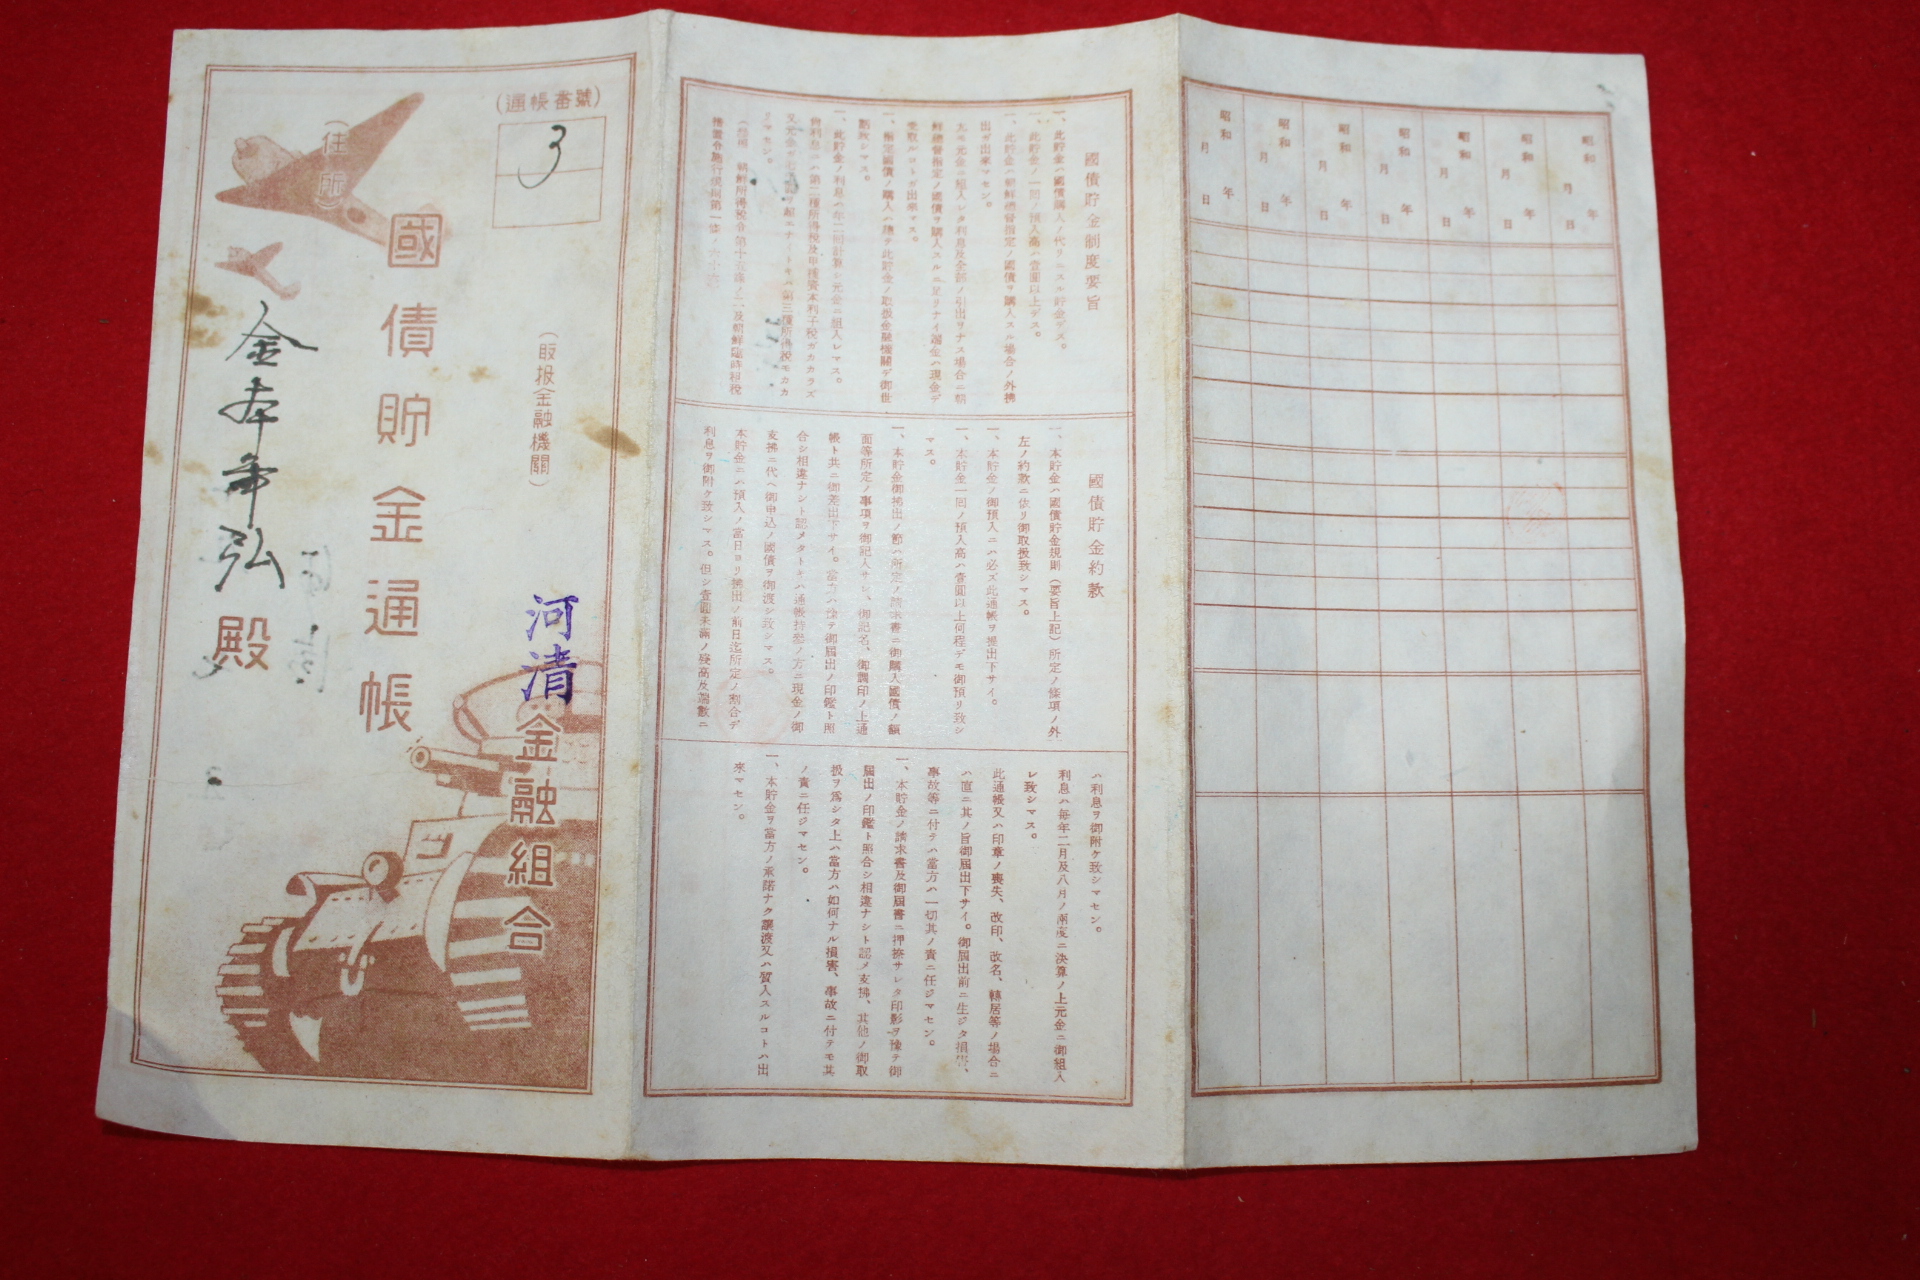 (通帳番號)
3
(住所)
國債貯金通帳
(取扱金融機關)
河清金融組合
金本年弘殿
國債貯金制度要旨
一、此貯金ハ國債購入ノ代リニスル貯金デス。
一、此貯金ノ一回ノ預入高ハ壹圓以上デス。
一、此貯金ハ朝鮮總督指定ノ國債ヲ購入スル場合ノ外拂
出ガ出來マセン。
受取ルコトガ出來マス。
一、指定國債ノ購入ハ總テ此貯金ノ取扱金融機關デ御世
話致シマス。
一、此貯金ノ利息ハ年二回計算シ元金ニ組入レマス。
國債貯金約款
一、本貯金ハ國債貯金規則(要旨上記)所定ノ條項ノ外
左ノ約款ニ依リ御取扱致シマス。
一、本貯金ノ御預入ニハ必ズ此通帳ヲ提出下サイ。
一、本貯金一回ノ預入高ハ壹圓以上何程デモ御預リ致シ
マス。
一、本貯金御拂出ノ節ハ所定ノ請求書ニ御購入國債ノ額
面等所定ノ事項ヲ御記入サレ、御記名、御調印ノ上通
帳ト共ニ御差出下サイ。當方ハ豫テ御屆出ノ印鑑ト照
合シ相違ナシト認メタトキハ通帳持參ノ方ニ現金ノ御
支拂ニ代ヘ御申込ノ國債ヲ御渡シ致シマス。
本貯金ニハ預入ノ當日ヨリ拂出ノ前日迄所定ノ割合デ
利息ヲ御附ケ致シマス。但シ壹圓未滿ノ殘高及端數ニ
ハ利息ヲ御附ケ致シマセン。
利息ハ毎年二月及八月ノ兩度ニ決算ノ上元金ニ御組入
レ致シマス。
此通帳又ハ印章ノ喪失、改印、改名、轉居等ノ場合ニ
ハ直ニ其ノ旨御屆出下サイ。御屆出前ニ生ジタ損害、
事故等ニ付テハ當方ハ一切其ノ責ニ任ジマセン。
一、本貯金ノ請求書及御屆書ニ押捺サレタ印影ヲ豫テ御
屆出ノ印鑑ト照合シ相違ナシト認メ支拂、其他ノ御取
扱ヲ爲シタ上ハ當方ハ如何ナル損害、事故ニ付テモ其
ノ責ニ任ジマセン。
一、本貯金ヲ當方ノ承諾ナク讓渡又ハ質入スルコトハ出
來マセン。
昭和 年 月 日
昭和 年 月 日
昭和 年 月 日
昭和 年 月 日
昭和 年 月 日
昭和 年 月 日
昭和 年 月 日